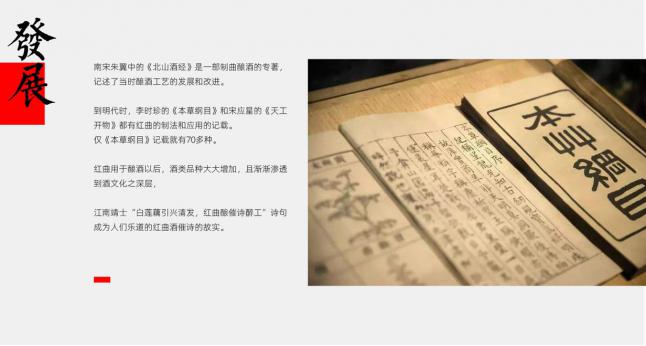 發展
南宋朱翼中的《北山酒经》是一部制曲酿酒的专著，
记述了当时酿酒工艺的发展和改进。
到明代时，李时珍的《本草纲目》和宋应星的《天工
开物》都有红曲的制法和应用的记载。
仅《本草纲目》记载就有70多种。
红曲用于酿酒以后，酒类品种大大增加，且渐渐渗透
到酒文化之深层，
江南靖士“白莲藕引兴清发，红曲酿催诗醉工”诗句
成为人们乐道的红曲酒催诗的故实。
本草綱目
本草綱目序